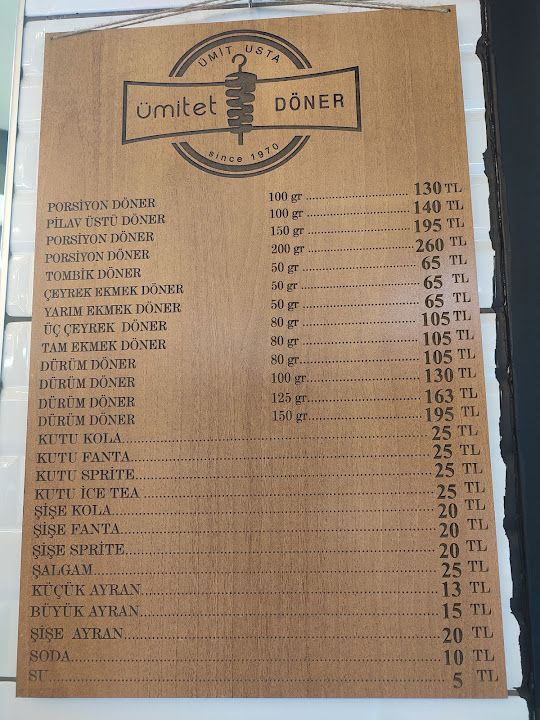 ÜMİT USTA
ümitet DÖNER
since 1970
PORSİYON DÖNER 100 gr 130 TL
PİLAV ÜSTÜ DÖNER 100 gr 140 TL
PORSİYON DÖNER 150 gr 195 TL
PORSİYON DÖNER 200 gr 260 TL
TOMBİK DÖNER 50 gr 65 TL
ÇEYREK EKMEK DÖNER 50 gr 65 TL
YARIM EKMEK DÖNER 50 gr 65 TL
ÜÇ ÇEYREK DÖNER 80 gr 105 TL
TAM EKMEK DÖNER 80 gr 105 TL
DÜRÜM DÖNER 80 gr 105 TL
DÜRÜM DÖNER 100 gr 130 TL
DÜRÜM DÖNER 125 gr 163 TL
DÜRÜM DÖNER 150 gr 195 TL
KUTU KOLA 25 TL
KUTU FANTA 25 TL
KUTU SPRİTE 25 TL
KUTU İCE TEA 25 TL
ŞİŞE KOLA 20 TL
ŞİŞE FANTA 20 TL
ŞİŞE SPRİTE 20 TL
ŞALGAM 25 TL
KÜÇÜK AYRAN 13 TL
BÜYÜK AYRAN 15 TL
ŞİŞE AYRAN 20 TL
SODA 10 TL
SU 5 TL